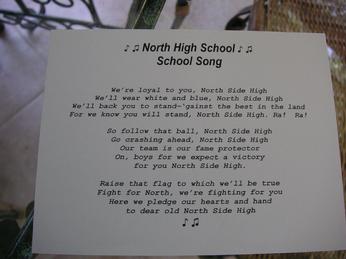 ♪♫ North High School ♪♫
School Song
We're loyal to you, North Side High
We'll wear white and blue, North Side High
We'll back you to stand-'gainst the best in the land
For we know you will stand, North Side High. Ra!  Ra!
So follow that ball, North Side High
Go crashing ahead, North Side High
Our team is our fame protector
On, boys for we expect a victory
for you North Side High.
Raise that flag to which we'll be true
Fight for North, we're fighting for you
Here we pledge our hearts and hand
to dear old North Side High
♪♫